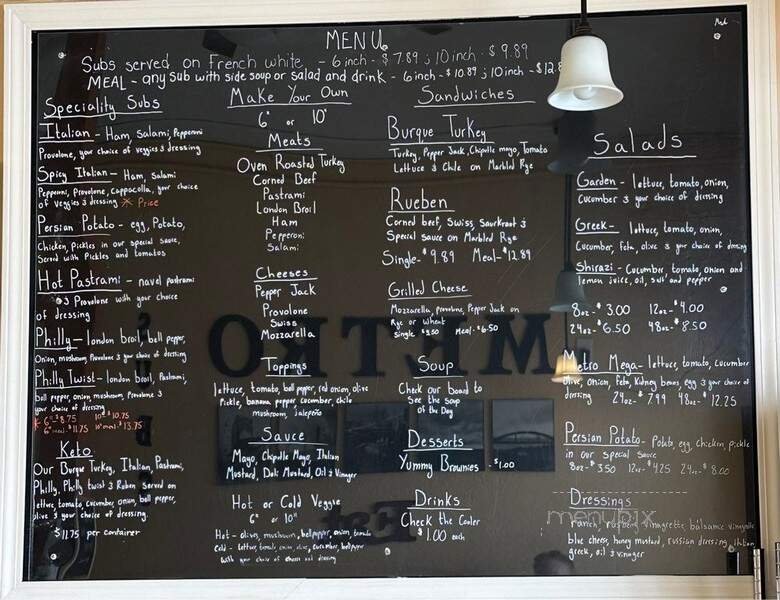 MENU
Subs served on French white - 6 inch - $7.89 ; 10 inch - $9.89
MEAL - any sub with side soup or salad and drink - 6 inch - $10.89 ; 10 inch - $12.8
Speciality Subs
Italian - Ham, Salami, Pepperoni
Provolone, your choice of veggies & dressing
Spicy Italian - Ham, Salami
Pepperoni, Provolone, Cappocolla, your choice
of veggies & dressing * Price
Persian Potato - egg, Potato,
Chicken, Pickles in our special sauce,
Served with Pickles and tomatos
Hot Pastrami - navel pastrami
& Provolone with your choice
of dressing
Philly - london broil, bell pepper,
Onion, mushroom, Provolone & your choice of dressing
Philly Twist - london broil, Pastrami,
bell pepper, onion, mushroom, Provolone &
your choice of dressing
* 6" $8.75 10" $10.75
6" meal - $11.75 10" meal - $13.75
Keto
Our Burque Turkey, Italian, Pastrami,
Philly, Philly twist & Ruben served on
lettuce, tomato, cucumber, onion, bell pepper,
olive & your choice of dressing.
$11.75 per container
Make Your Own
6" or 10"
Meats
Oven Roasted Turkey
Corned Beef
Pastrami
London Broil
Ham
Pepperoni
Salami
Cheeses
Pepper Jack
Provolone
Swiss
Mozzarella
Toppings
lettuce, tomato, bell pepper, red onion, olive
Pickle, banana pepper, cucumber, chile
mushroom, jalapeño
Sauce
Mayo, Chipotle Mayo, Italian
Mustard, Deli Mustard, Oil & Vinegar
Hot or Cold Veggie
6" or 10"
Hot - olives, mushroom, bell pepper, onion, tomato
Cold - lettuce, tomato, onion, olive, cucumber, bell pepper
with your choice of cheese and dressing
Sandwiches
Burque Turkey
Turkey, Pepper Jack, Chipotle mayo, Tomato
Lettuce & Chile on Marbled Rye
Rueben
Corned beef, Swiss, Saurkraut &
Special sauce on Marbled Rye
Single - $9.89 Meal - $12.89
Grilled Cheese
Mozzarella, provolone, Pepper Jack on
Rye or Wheat
Single Meal - $6.50
Soup
Check our board to
See the Soup
of the Day
Desserts
Yummy Brownies - $1.00
Drinks
Check the Cooler
$1.00 each
Salads
Garden - lettuce, tomato, onion,
Cucumber & your choice of dressing
Greek - lettuce, tomato, onion,
Cucumber, Feta, olive & your choice of dressing
Shirazi - Cucumber, tomato, onion and
lemon juice, oil, salt and pepper
8oz - $3.00 12oz - $4.00
24oz - $6.50 48oz - $8.50
Metro Mega - lettuce, tomato, cucumber
olive, onion, Feta, Kidney beans, egg & your choice of
dressing 24oz - $7.99 48oz - $12.25
Persian Potato - Potato, egg, chicken, pickle
in our special sauce
8oz - $3.50 12oz - $4.25 24oz - $8.00
Dressings
Ranch, vinagrette, balsamic vinagrette
blue cheese, honey mustard, russian dressing, Italian
greek, oil & vinager
METRO
menupix